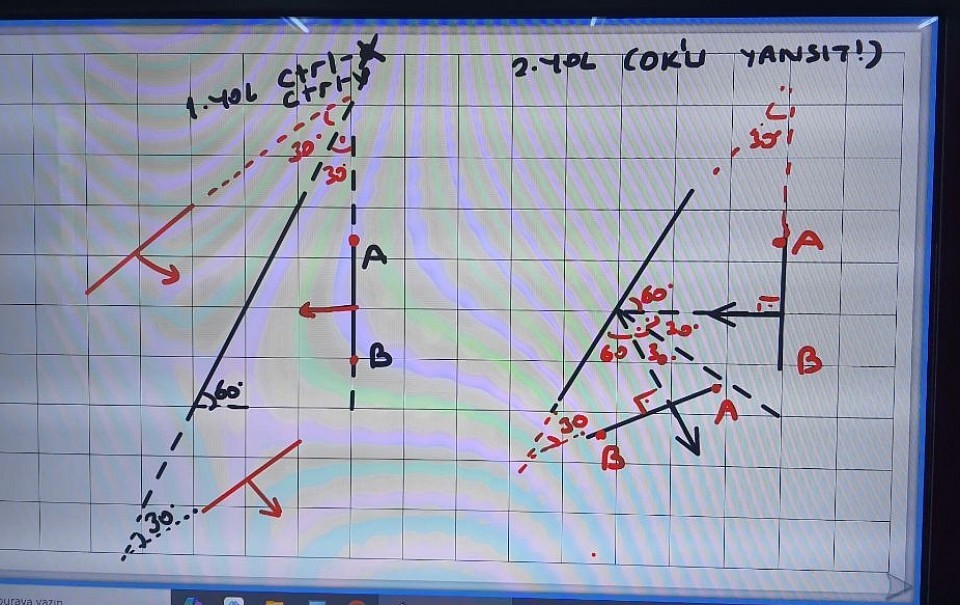 1.YOL ctrl-X
ctrl-y
30°
30°
A
B
60°
30°
2.YOL (OK'U YANSIT!)
30°
A
60°
30°
60
30
B
A
30
B
buraya yazın